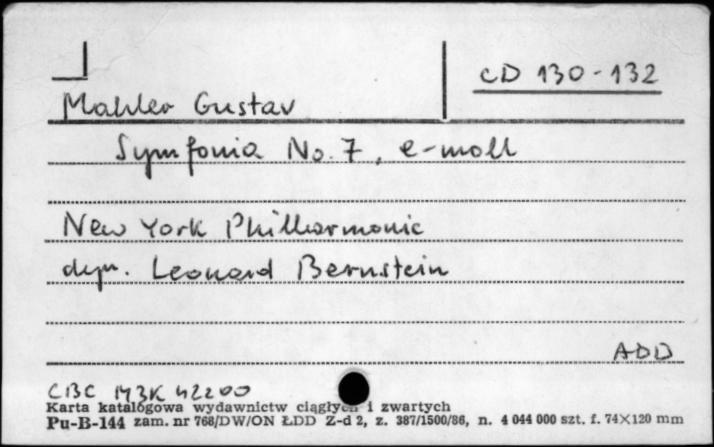 CD 130-132
Mahler Gustav
Symfonia No. 7, e-moll
New York Philharmonic
dyr. Leonard Bernstein
ADD
CBC M3K 42200
Karta katalogowa wydawnictw ciągłych i zwartych
Pu-B-144 zam. nr 768/DW/ON ŁDD Z-d 2, z. 387/1500/86, n. 4 044 000 szt. f. 74×120 mm